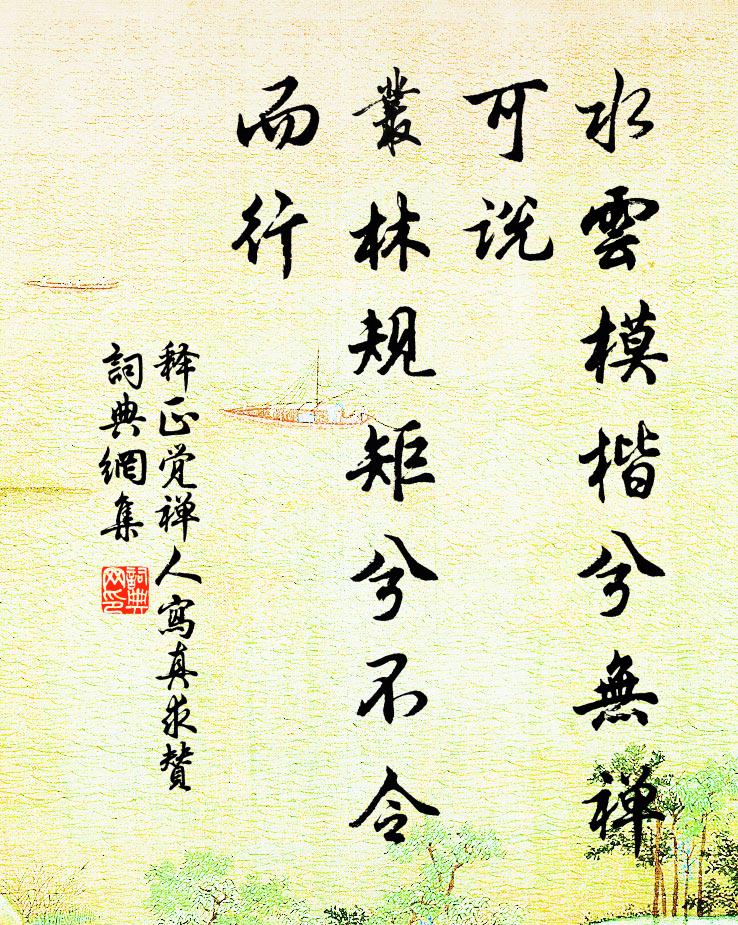 水雲模楷兮無禅
可说
叢林规矩兮不令
而行
释正觉禅人寫真求贊
詞典網集
詞典
网印